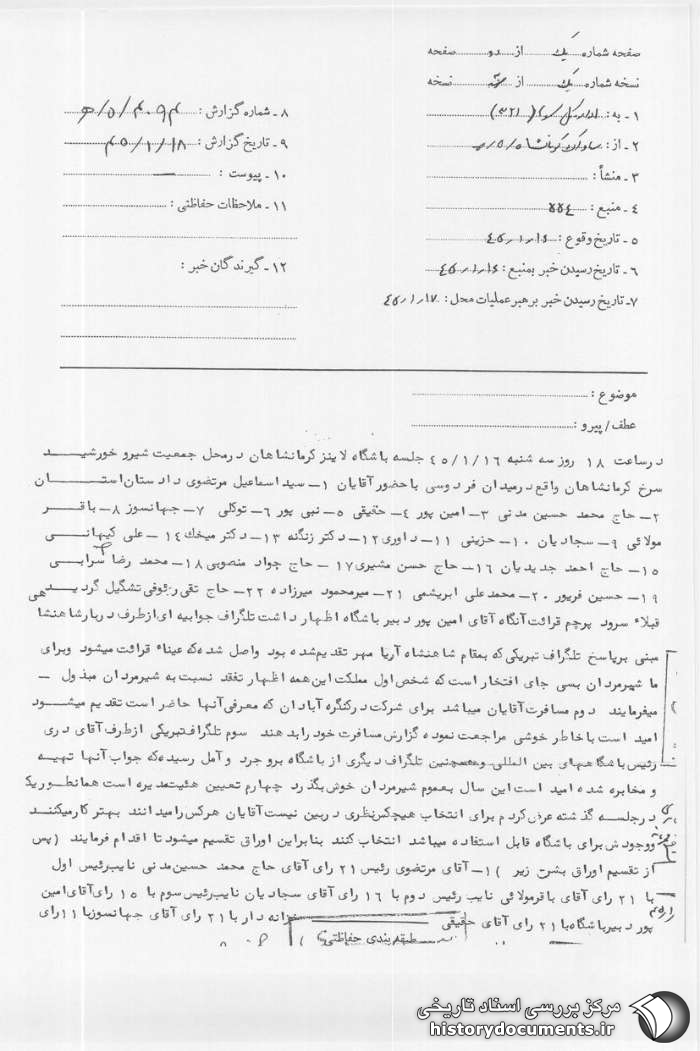 صفحه شماره یک از دو صفحه
نسخه شماره یک از سه نسخه
۱ـ به : اداره کل سوم (۳۲۱)
۲ـ از : ساواک کرمانشاه
۳ـ منشأ :
۴ـ منبع :
۵ـ تاریخ وقوع : ۴۵/۱/۱۶
۶ـ تاریخ رسیدن خبر بمنبع : ۴۵/۱/۱۶
۷ـ تاریخ رسیدن خبر برهبر عملیات محل : ۴۵/۱/۱۷
۸ـ شماره گزارش :
۹ـ تاریخ گزارش : ۴۵/۱/۱۸
۱۰ـ پیوست : —
۱۱ـ ملاحظات حفاظتی :
۱۲ـ گیرندگان خبر :
موضوع :
عطف/پیرو :
درساعت ۱۸ روز سه شنبه ۴۵/۱/۱۶ جلسه باشگاه لاینز کرمانشاهان درمحل جمعیت شیرو خورشید
سرخ کرمانشاهان واقع درمیدان فردوسی باحضور آقایان ۱ـ سید اسماعیل مرتضوی دادستان استان
۲ـ حاج محمد حسین مدنی ۳ـ امین پور ۴ـ حقیقی ۵ـ نبی پور ۶ـ توکلی ۷ـ جهانسوز ۸ـ باقر
مولائی ۹ـ سجادیان ۱۰ـ حزینی ۱۱ـ داوری ۱۲ـ دکتر زنگنه ۱۳ـ دکتر میخک ۱۴ـ علی کیهانی
۱۵ـ حاج احمد جدیدیان ۱۶ـ حاج حسن مشیری ۱۷ـ حاج جواد منصوبی ۱۸ـ محمد رضا سرابی
۱۹ـ حسین فریور ۲۰ـ محمدعلی ابریشمی ۲۱ـ میرمحمود میرزاده ۲۲ـ حاج تقی رئوفی تشگیل گردید
قبلاً سرود پرچم قرائت آنگاه آقای امین پور دبیر باشگاه اظهار داشت تلگراف جوابیه ای ازطرف دربار شاهنشاهی
مبنی برپاسخ تلگراف تبریکی که بمقام شاهنشاه آریا مهر تقدیم شده بود واصل شده که عیناً قرائت میشود وبرای
ما شیرمردان بسی جای افتخار است که شخص اول مملکت این همه اظهار تفقد نسبت به شیرمردان مبذول ـ
میفرمایند دوم مسافرت آقایان میباشد برای شرکت درکنگره آبادان که معرفی آنها حاضر است تقدیم میشود
امید است باخاطر خوشی مراجعت نموده گزارش مسافرت خود را بدهند سوم تلگراف تبریکی ازطرف آقای دری
رئیس باشگاههای بین المللی وهمچنین تلگراف دیگری از باشگاه بروجرد و آمل رسیده که جواب آنها تهیه
و مخابره شده امید است این سال بعموم شیرمردان خوش بگذرد چهارم تعیین هیئت مدیره است همانطوریکه
درجلسه گذشته عرض کردم برای انتخاب هیچکس نظری دربین نیست آقایان هرکس را میدانند بهتر کارمیکند
ووجودش برای باشگاه قابل استفاده میباشد انتخاب کنند بنابراین اوراق تقسیم میشود تا اقدام فرمایند (پس
از تقسیم اوراق بشرح زیر ) ۱ـ آقای مرتضوی رئیس ۲۱ رای آقای حاج محمد حسین مدنی نایب رئیس اول
با ۲۱ رای آقای باقرمولائی نایب رئیس دوم با ۱۶ رای آقای سجادیان نایب رئیس سوم با ۱۵ رای آقای امین
پور دبیرباشگاه با ۲۱ رای آقای حقیقی خزانه دار با ۲۱ رای آقای جهانسوز با ۱۱ رای
طبقه بندی حفاظتی
مرکز بررسی اسناد تاریخی
historydocuments.ir